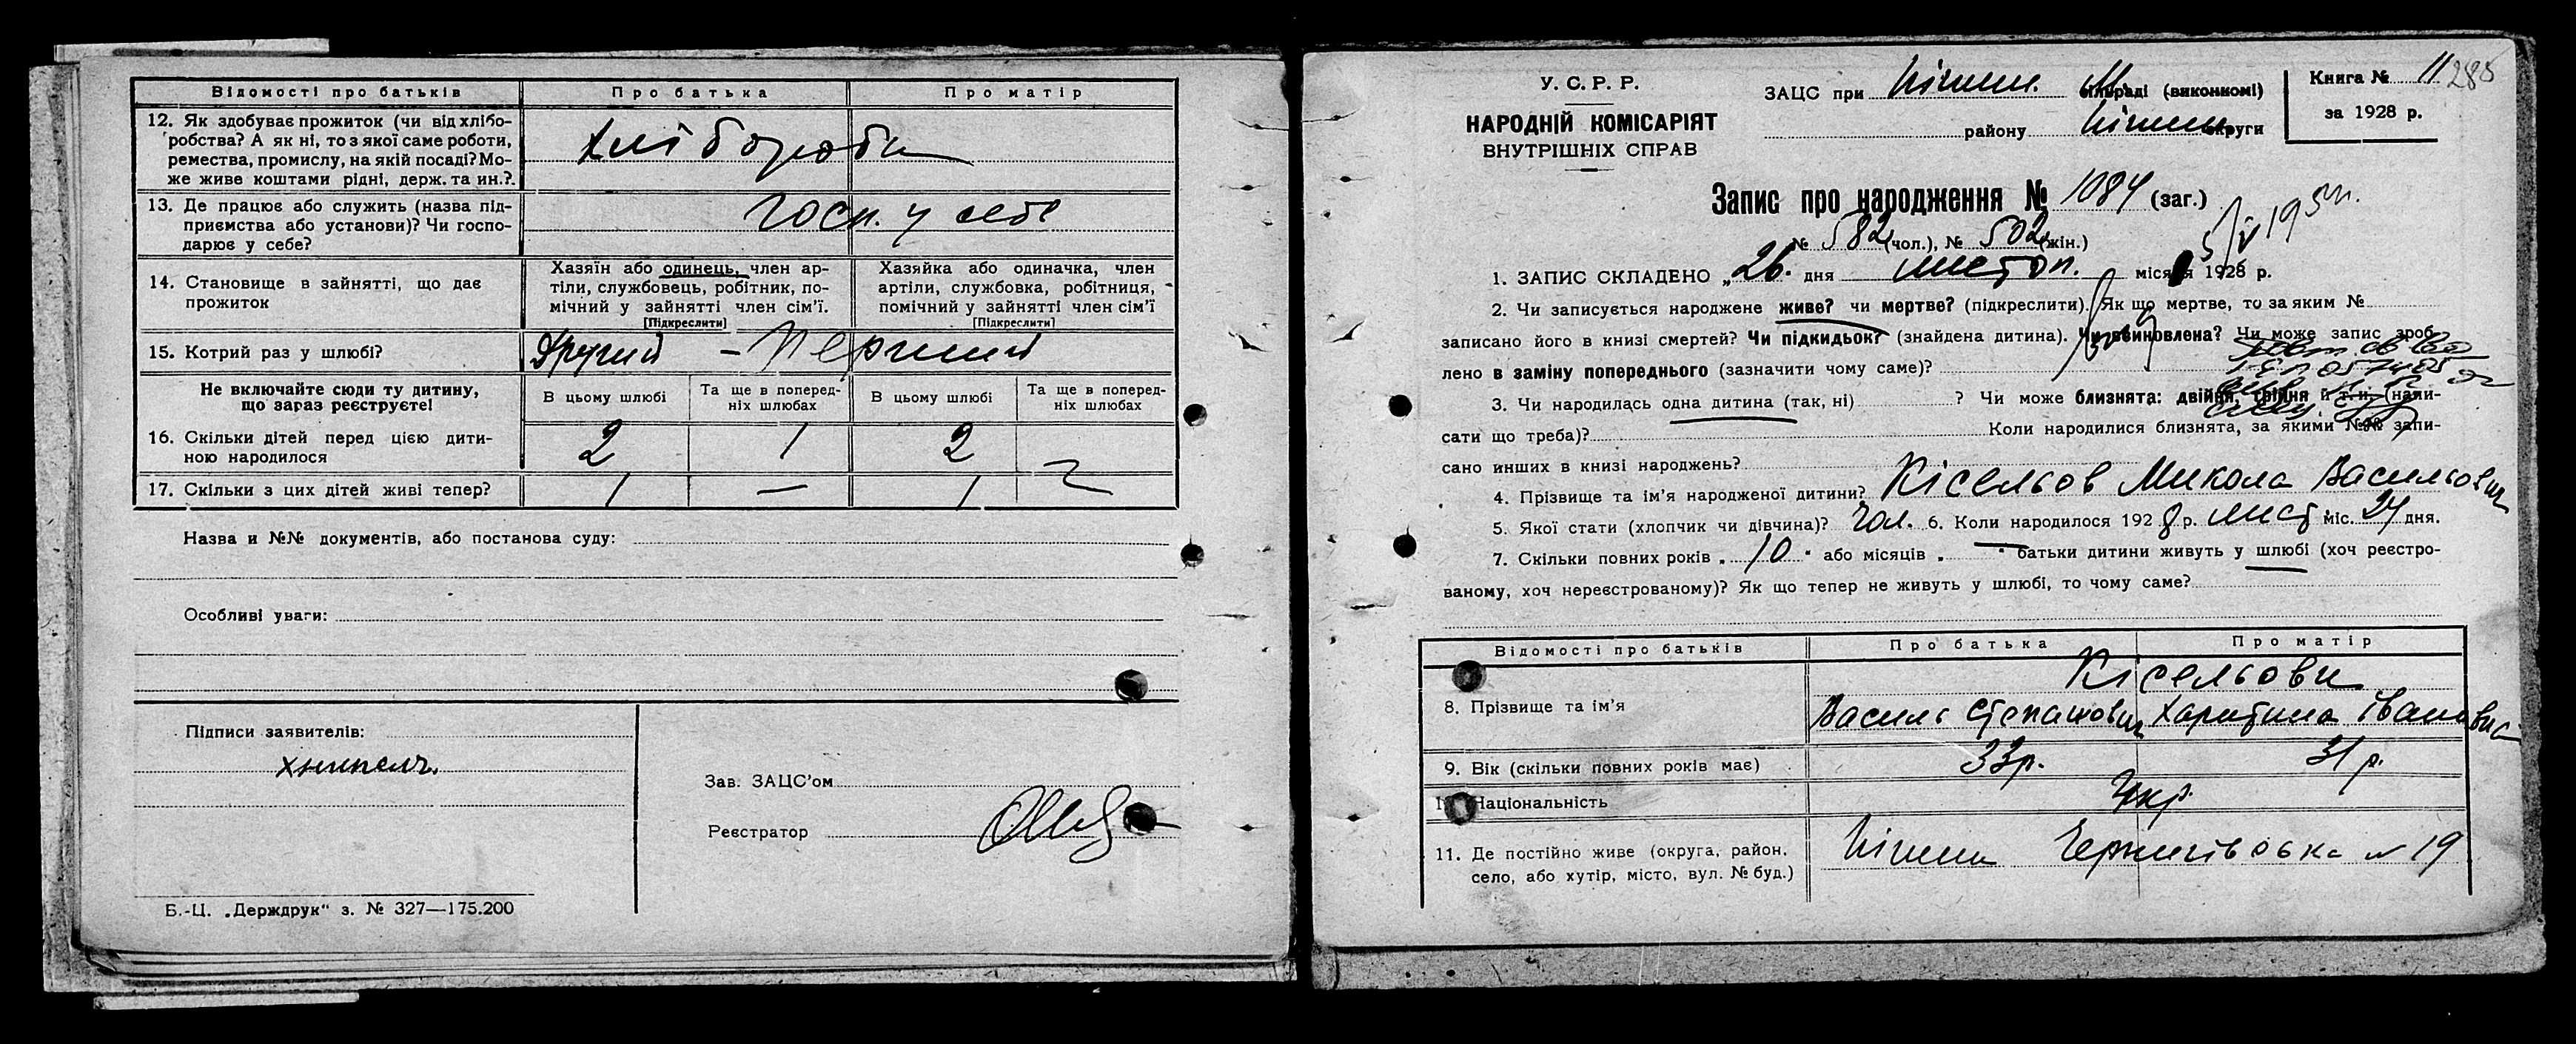 Відомості про батьків Про батька Про матір
12. Як здобуває прожиток (чи від хлібо-
робства? А як ні, то з якої саме роботи,
ремества, промислу, на якій посаді? Мо-
же живе коштами рідні, держ. та ин.?.
Хлібороби
13. Де працює або служить (назва під-
приємства або установи)? Чи госпо-
дарює у себе?
госп. у себе
14. Становище в зайнятті, що дає
прожиток
Хазяїн або одинець, член ар-
тіли, службовець, робітник, по-
мічний у зайнятті член сім'ї.
[Підкреслити]
Хазяйка або одиначка, член
артіли, службовка, робітниця,
помічний у зайнятті член сім'ї
[Підкреслити]
15. Котрий раз у шлюбі? Другий – Перший
Не включайте сюди ту дитину,
що зараз реєструєте!
В цьому шлюбі Та ще в поперед-
ніх шлюбах В цьому шлюбі Та ще в поперед-
ніх шлюбах
16. Скільки дітей перед цією дити-
ною народилося 2 1 2
17. Скільки з цих дітей живі тепер? 1 — 1
Назва и №№ документів, або постанова суду:
Особливі уваги:
Підписи заявителів:
Зав. ЗАЦС'ом
Реєстратор
Б.-Ц. „Держдрук“ з. № 327—175.200
У. С. Р. Р.
НАРОДНІЙ КОМІСАРІЯТ
ВНУТРІШНІХ СПРАВ
ЗАЦС при Ніжин. сільраді (виконкомі)
району Ніжин округи
Книга № 11
за 1928 р.
285
Запис про народження № 1084 (заг.)
№ 582 (чол.), № 502 (жін.)
1. ЗАПИС СКЛАДЕНО „26. дня листоп. місяця 1928 р.
2. Чи записується народжене живе? чи мертве? (підкреслити). Як що мертве, то за яким №
записано його в книзі смертей? Чи підкидьок? (знайдена дитина). Чи всиновлена? Чи може запис зроб-
лено в заміну попереднього (зазначити чому саме)?
3. Чи народилась одна дитина (так, ні) ? Чи може близнята: двійня, трійня й т. и. (напи-
сати що треба)? Коли народилися близнята, за якими №№ запи-
сано инших в книзі народжень?
4. Прізвище та ім'я народженої дитини? Кісельов Микола Васильович
5. Якої стати (хлопчик чи дівчина)? Чол. 6. Коли народилося 1928 р. лист. міс. 24 дня.
7. Скільки повних років „ 10 " або місяців „ — " батьки дитини живуть у шлюбі (хоч реєстро-
ваному, хоч нереєстрованому)? Як що тепер не живуть у шлюбі, то чому саме?
Відомості про батьків Про батька Про матір
Кісельови
8. Прізвище та ім'я Василь Степанович Харитина Івановна
9. Вік (скільки повних років має) 33р. 31 р.
10. Національність Укр.
11. Де постійно живе (округа, район,
село, або хутір, місто, вул. № буд.)
Ніжин Чернигівська № 19